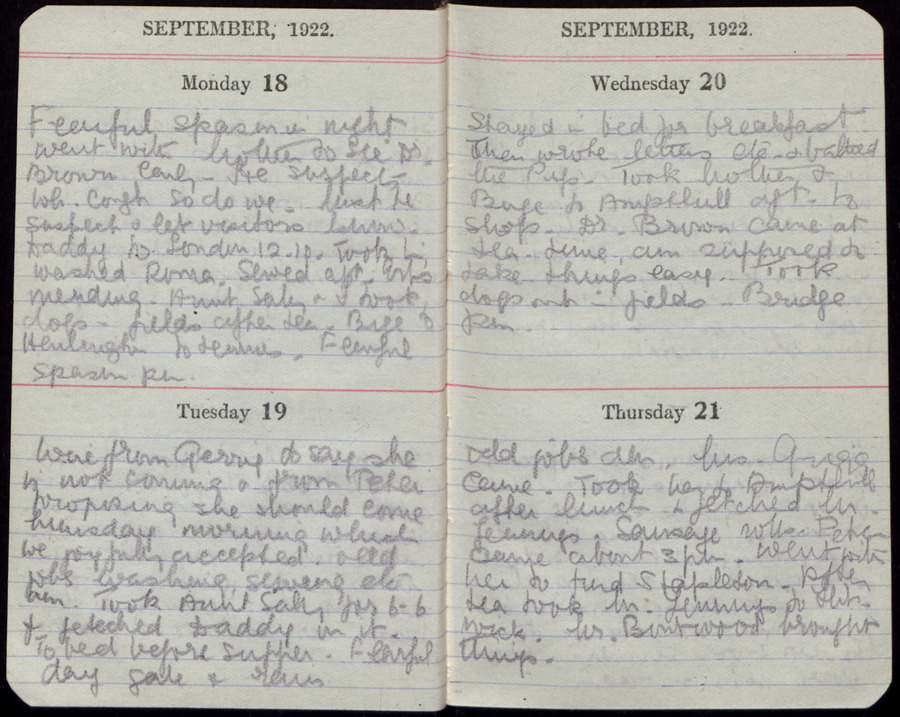 SEPTEMBER, 1922.
Monday 18
Fearful spasm in night
went with Mother to see Dr.
Brown early - He suspects
Wh. Cough so do we - must be
suspect & let visitors know.
Daddy to London 12.10. Took in
washed Roma. Sewed aft.
mending. Aunt Sally & I took
dogs - fields after tea. Bige to
to tennis. Fearful
spasm pm.
Tuesday 19
Wire from Gerrie to say she
is not coming & from Peter
proposing she should come
Thursday morning which
we joyfully accepted. Odd
jobs washing sewing etc
Took Aunt Sally for 6-6
& fetched Daddy in it.
To bed before supper. Fearful
day gale & rain
SEPTEMBER, 1922.
Wednesday 20
Stayed in bed for breakfast
Then wrote letters etc & bathed
the Pup. Took Mother &
Bige to Ampthill aft. to
shop. Dr. Brown came at
tea-time, am supposed to
take things easy. Took
dogs out - fields - Bridge
pm.
Thursday 21
Odd jobs am. Mrs. Grigg
came. Took her to Ampthill
after lunch & fetched Mr.
Jennings. Sausage rolls. Peter
came about 3 pm. Went with
her to find Stapleton. After
tea took Mr. Jennings to Flit-
wick. Mr. brought
things.